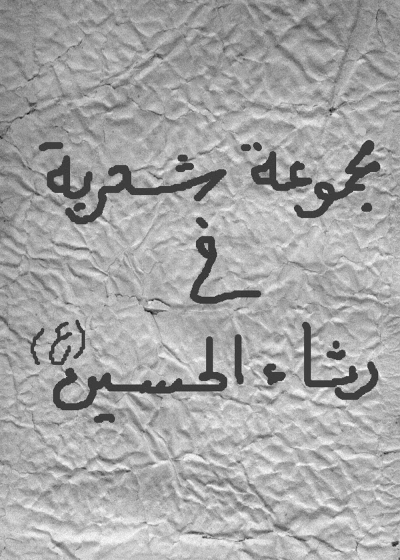 مجموعة شعرية
في
رثاء الحسين (ع)